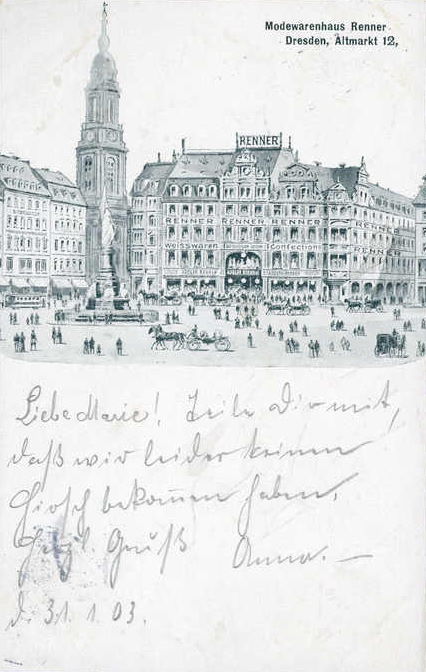 Modewarenhaus Renner
Dresden, Altmarkt 12,
RENNER
RENNER RENNER RENNER
Weisswaren Confection
ADOLPH RENNER
Liebe Marie! Teile Dir mit,
daß wir leider keinen
Hirsch bekommen haben.
Herzl. Gruß Anna.
d. 31. 1. 03.